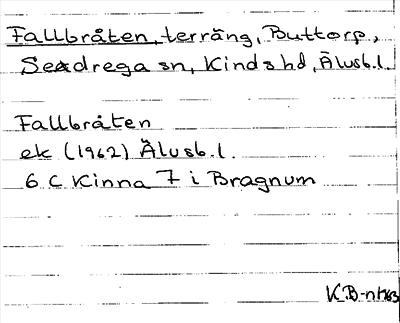 Fallbråten, terräng, Buttorp,
Sexdrega sn, Kinds hd, Älvsb.l.
Fallbråten
ek (1962) Älvsb.l.
6 C Kinna 7 i Bragnum
KB-n 1963